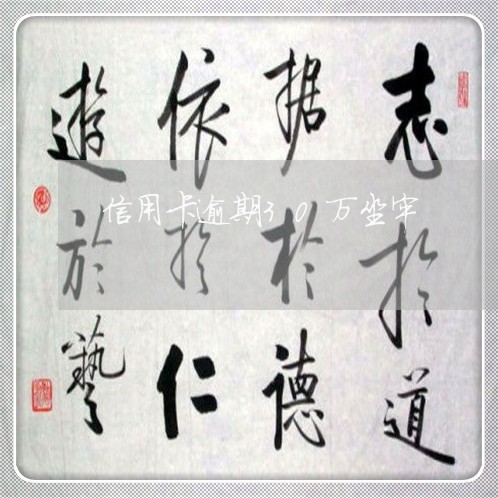 志於道
据於德
依於仁
遊於藝
信用卡逾期30万坐牢